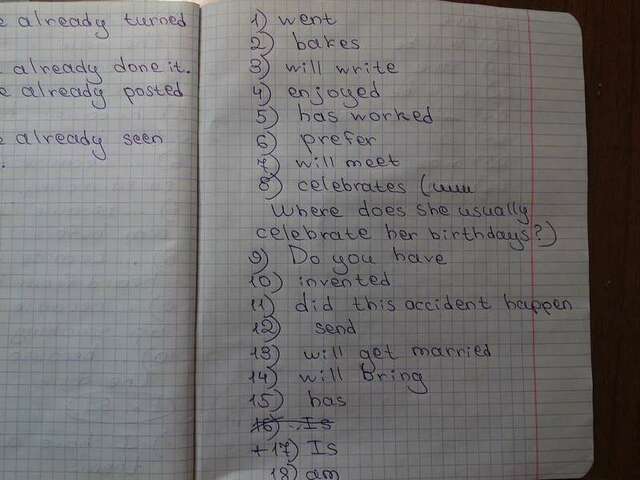 e already turned
already done it.
e already posted
e already seen
1) went
2) bakes
3) will write
4) enjoyed
5) has worked
6) prefer
7) will meet
8) celebrates (или
Where does she usually
celebrate her birthdays?)
9) Do you have
10) invented
11) did this accident happen
12) send
13) will get married
14) will bring
15) has
16) Is
+17) Is
18) am